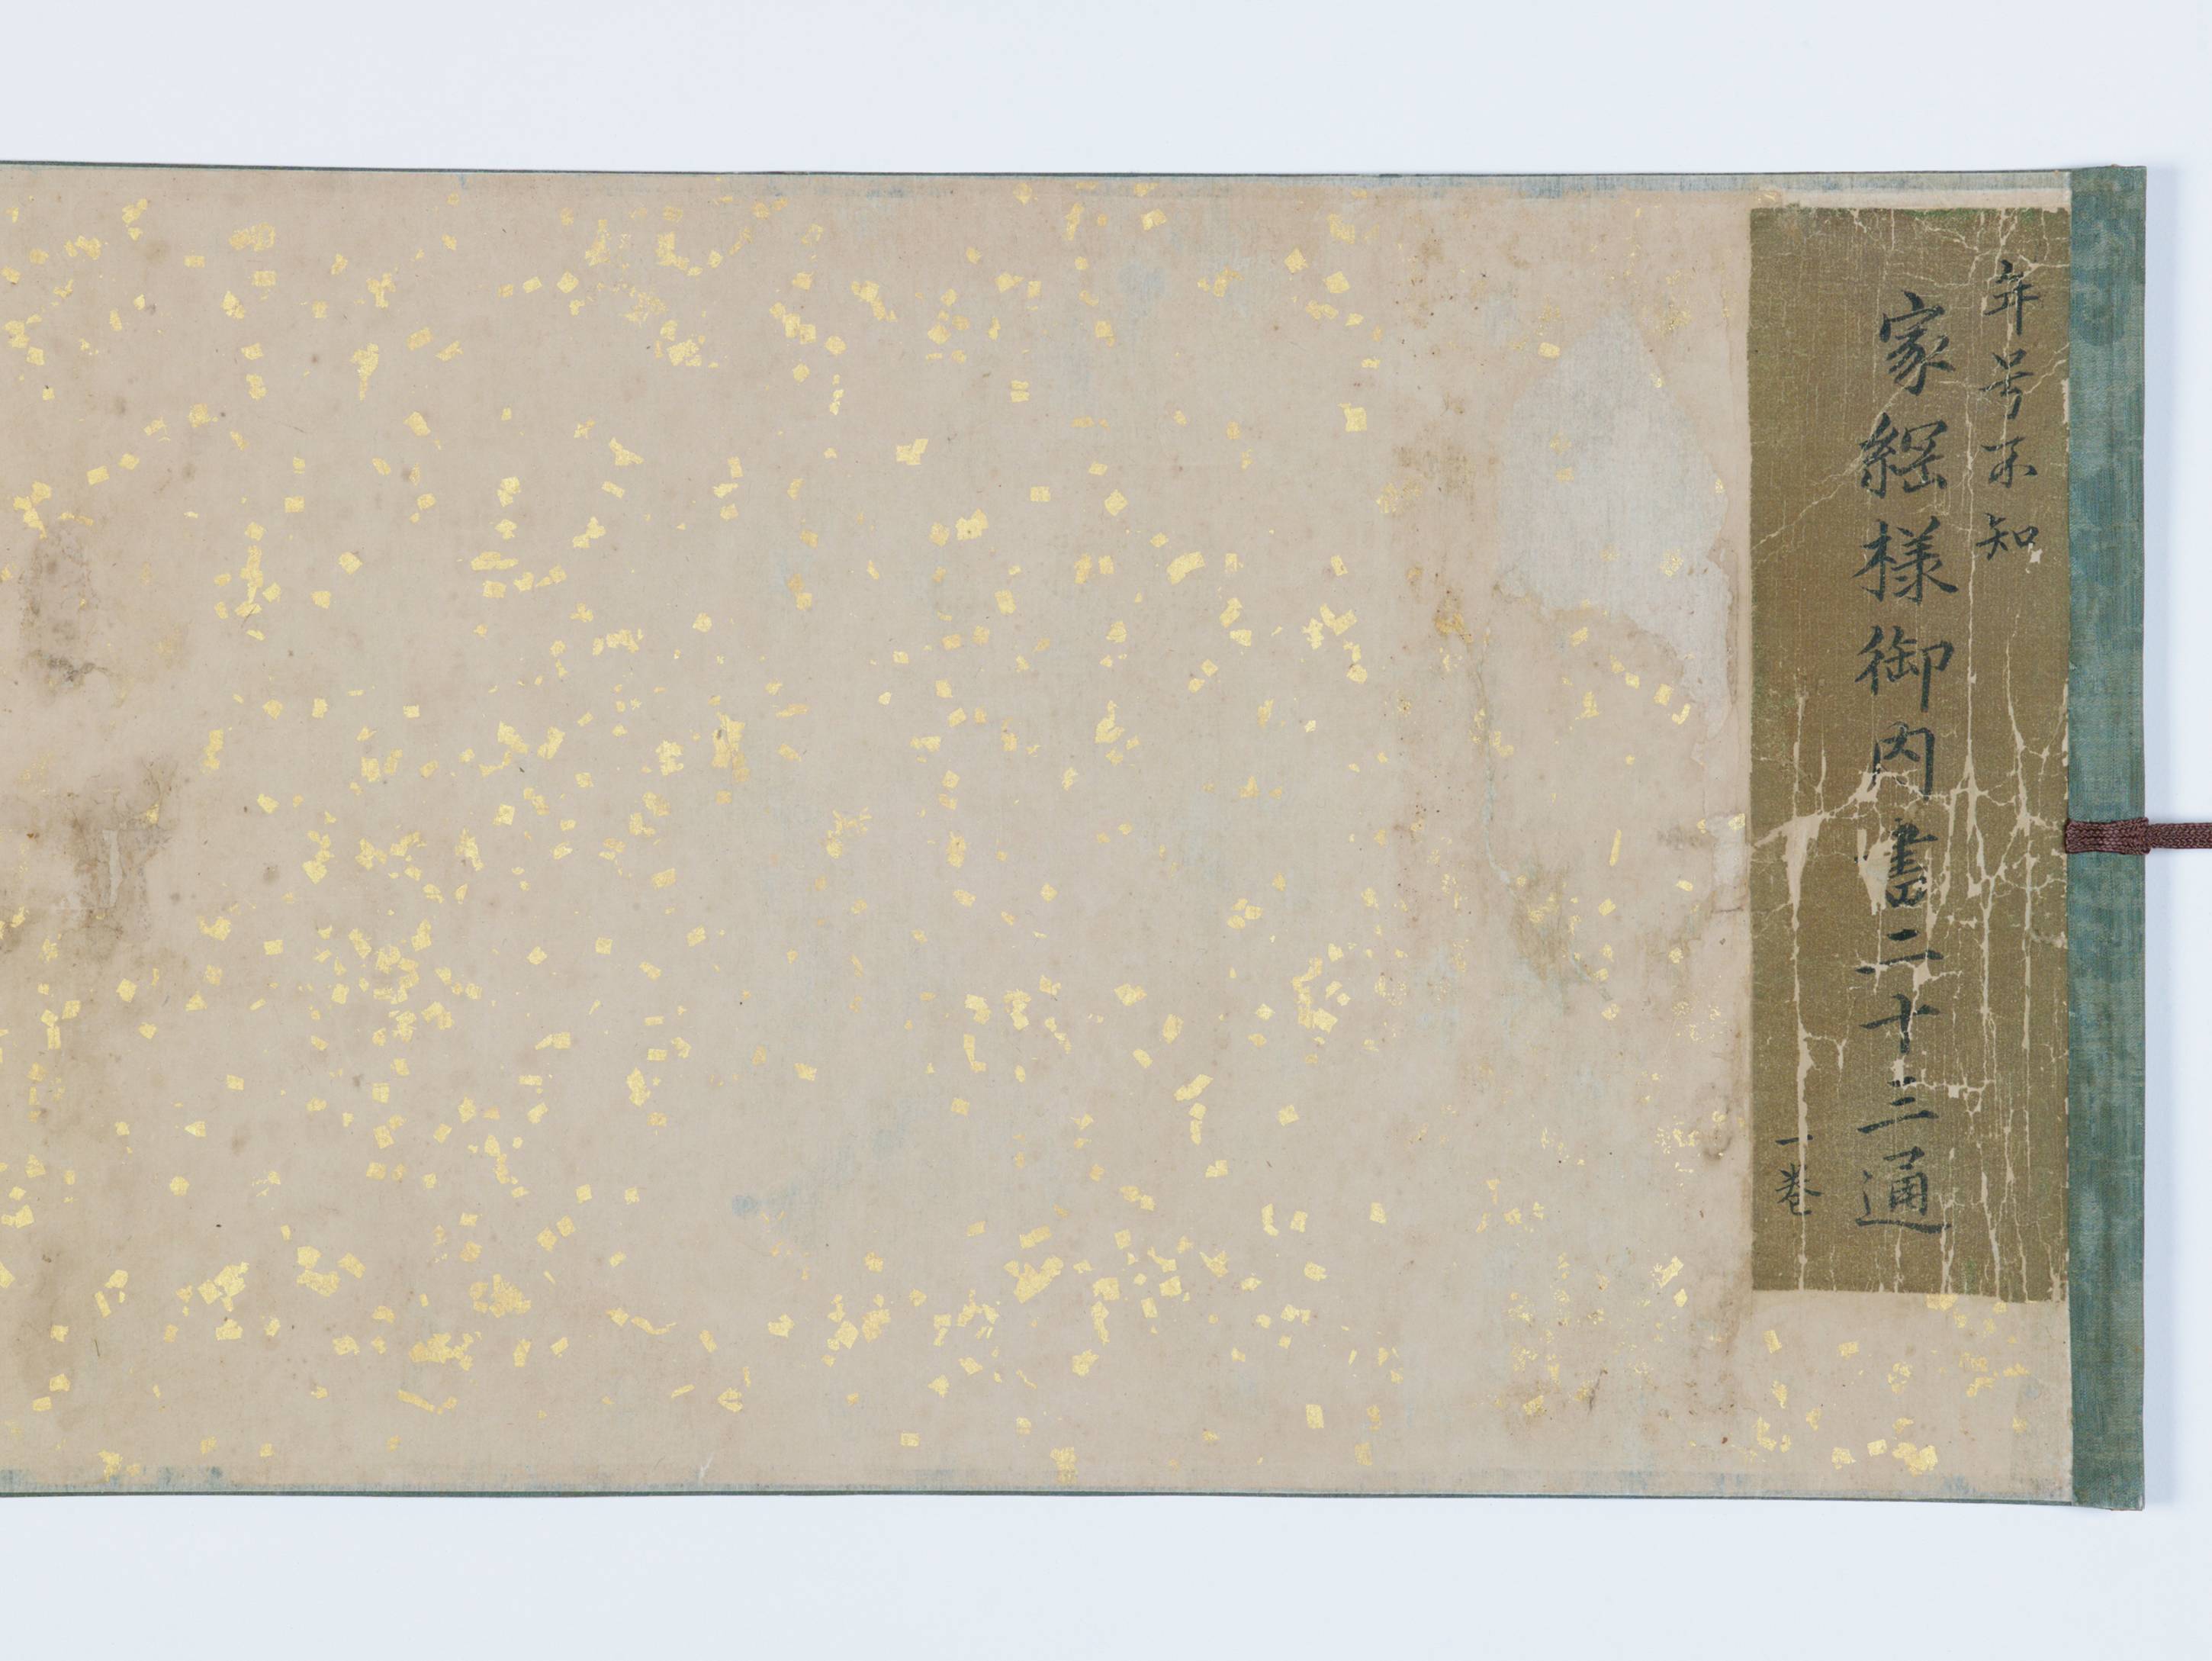 年号不知
家綱様御内書二十三通
一巻